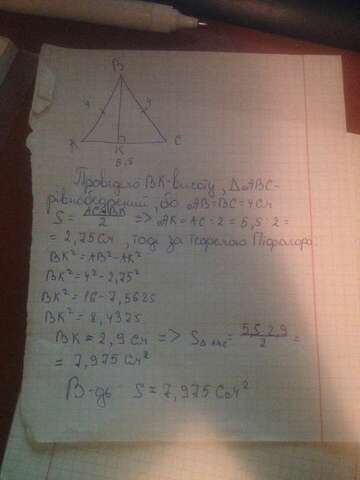 B
4
4
A
K
C
5,5
Проведемо BK-висоту, ΔABC-
рівнобедрений, бо AB=BC=4см
S = AC·BK/2 => AK=AC:2=5,5:2=
= 2,75см, тоді за теоремою Піфагора:
BK²=AB²-AK²
BK²=4²-2,75²
BK²=16-7,5625
BK²=8,4375
BK≈2,9см => S△ABC = 5,5·2,9/2 =
= 7,975см²
В-дь: S=7,975см²